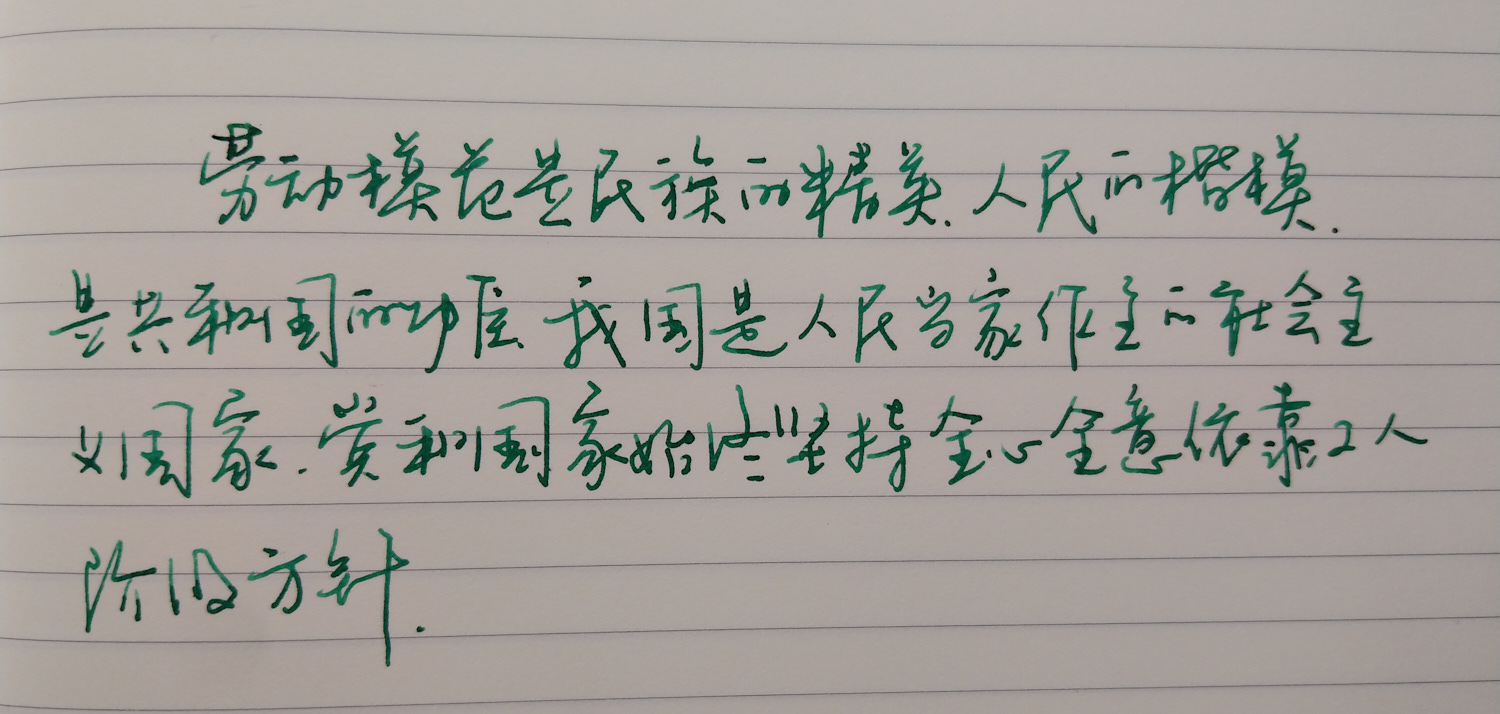 劳动模范是民族的精英、人民的楷模.
是共和国的功臣.我国是人民当家作主的社会主
义国家.党和国家始终坚持全心全意依靠工人
阶级方针.